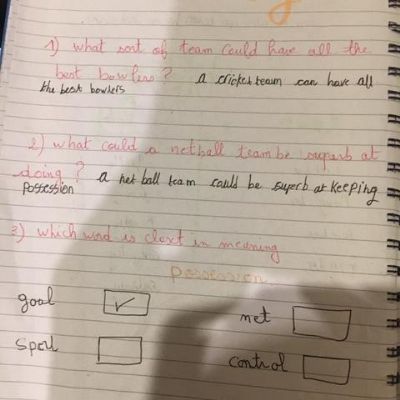 1) what sort of team could have all the
best bowlers? a cricket team can have all
the best bowlers
2) what could a netball team be superb at
doing? a net ball team could be superb at keeping
possession
3) which word is clost in meaning
possession
goal ✓ net
spell control